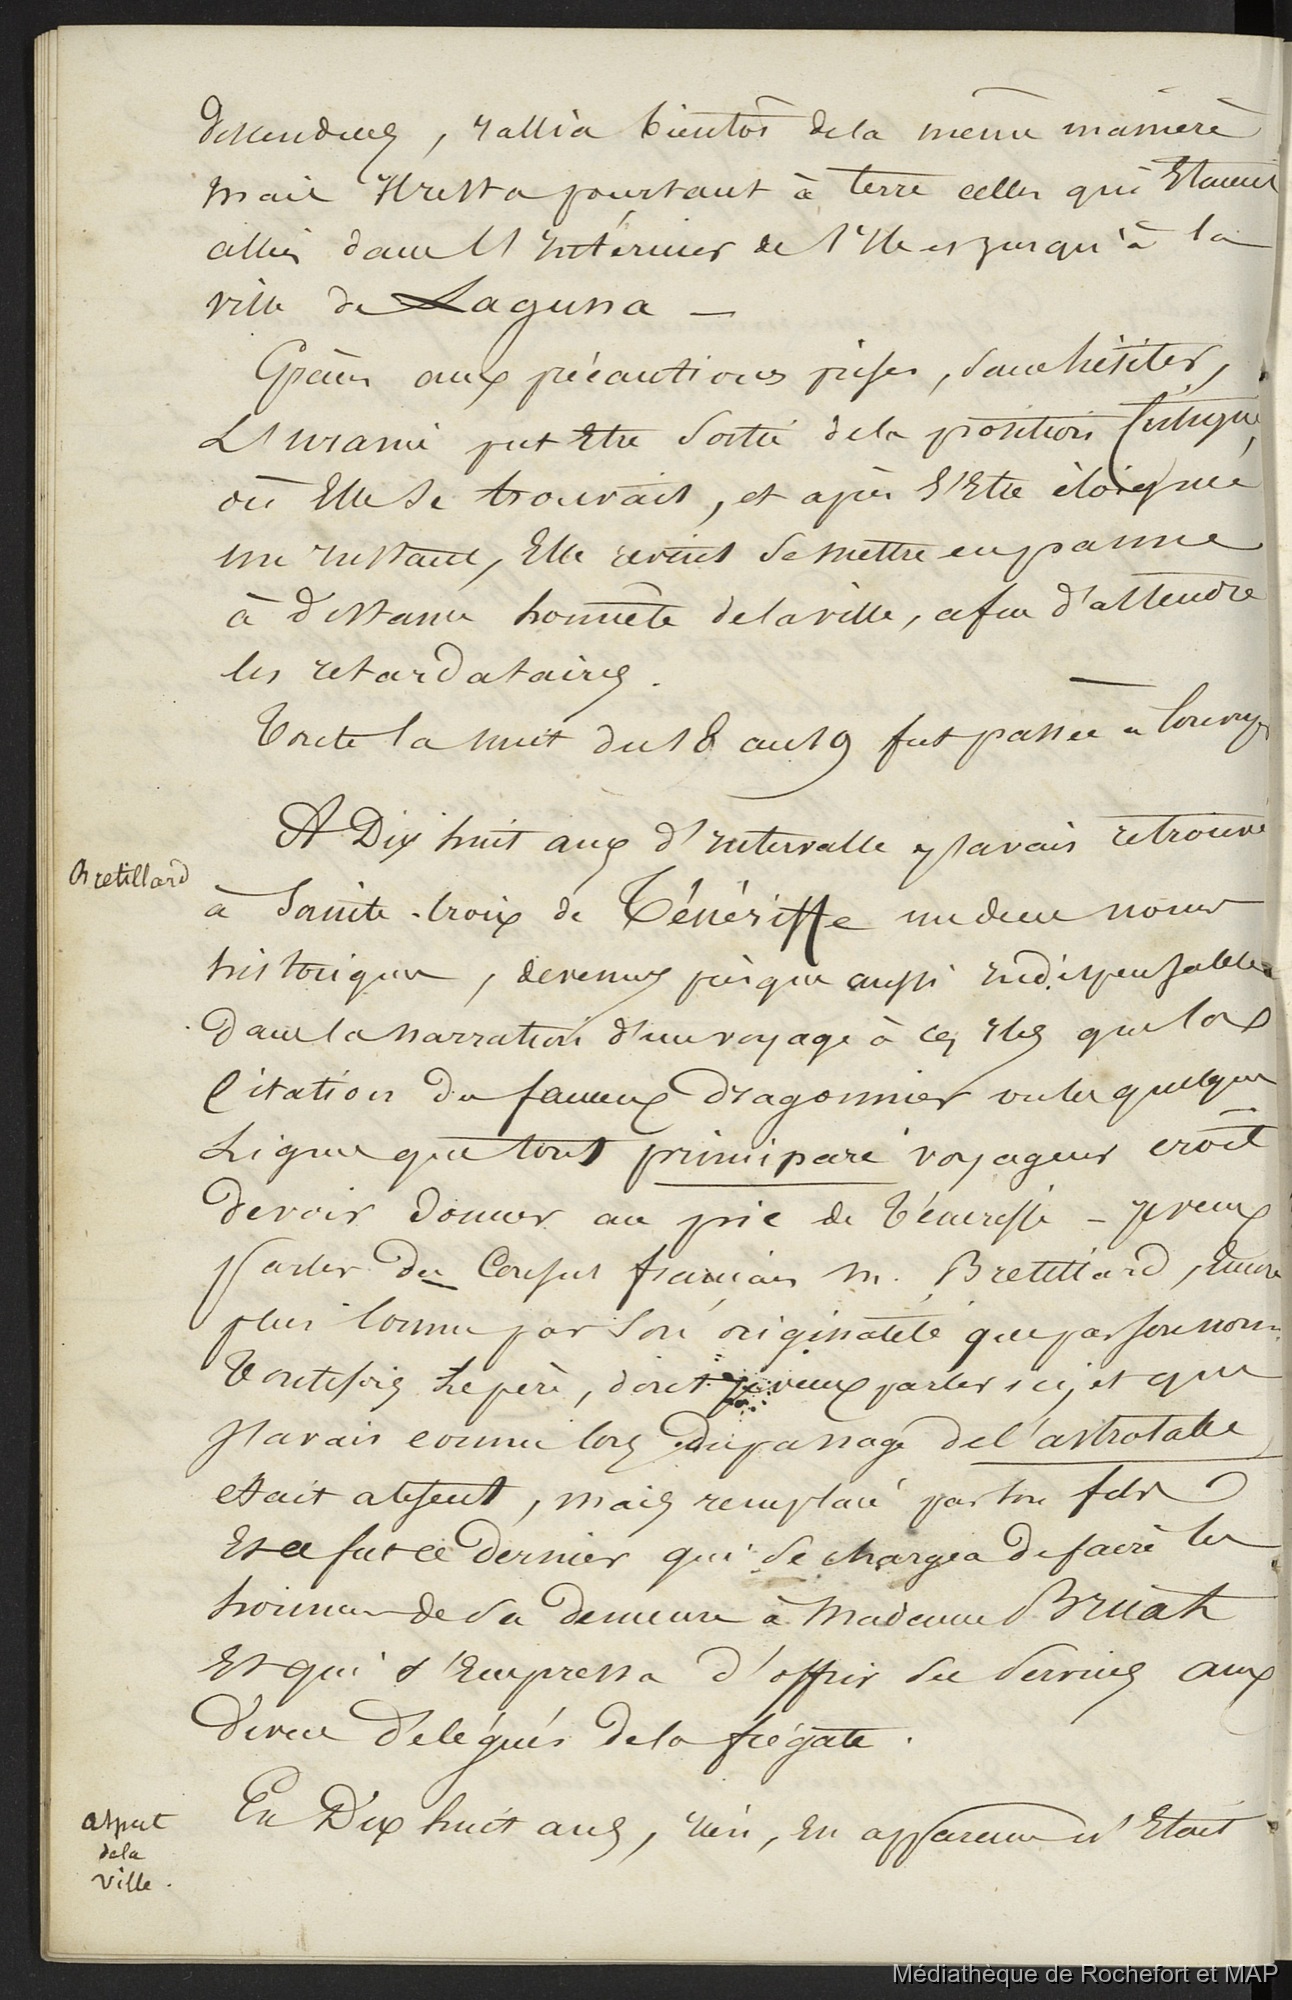 descendues, rallia bientôt dela même manière
mais Il resta pourtant à terre celles qui Etaient
allés dans l'Intérieur de l'Ile et jusqu'à la
ville de Laguna —
Grâces aux précautions prises, sans hésiter,
L'Uranie put Etre sortie dela position critique
où Elle se trouvait, et après s'Etre éloignée
un Instant, Elle revint se mettre en panne
à distance honnête dela ville, afin d'attendre
les retardataires.
Toute la nuit du 18 au 19 fut passée à louvoyer
Bretillard
A Dix huit ans d'Intervalle j'avais retrouvé
à Sainte-Croix de Ténériffe un deces noms
historiques, devenus presque aussi Indispensables
dans la narration d'un voyage à ces Iles que la
Citation du fameux dragonnier ou les quelques
Lignes que tout primipare voyageur croit
devoir donner au pic de Ténériffe - Je veux
parler du Consul français M. Bretillard, Encore
plus connu par son originalité que par son nom.
Toutefois Le père, dont je veux parler ici, et que
J'avais connu lors du passage de l'astrolabe,
était absent, mais remplacé par son fils
Et ce fut ce dernier qui se chargea de faire les
honneurs de sa demeure à Madame Bruat
Et qui s'Empressa d'offrir ses services aux
divers délégués dela frégate.
aspect
dela
ville.
En Dix huit ans, rien, En apparence n'Etait
Médiathèque de Rochefort et MAP